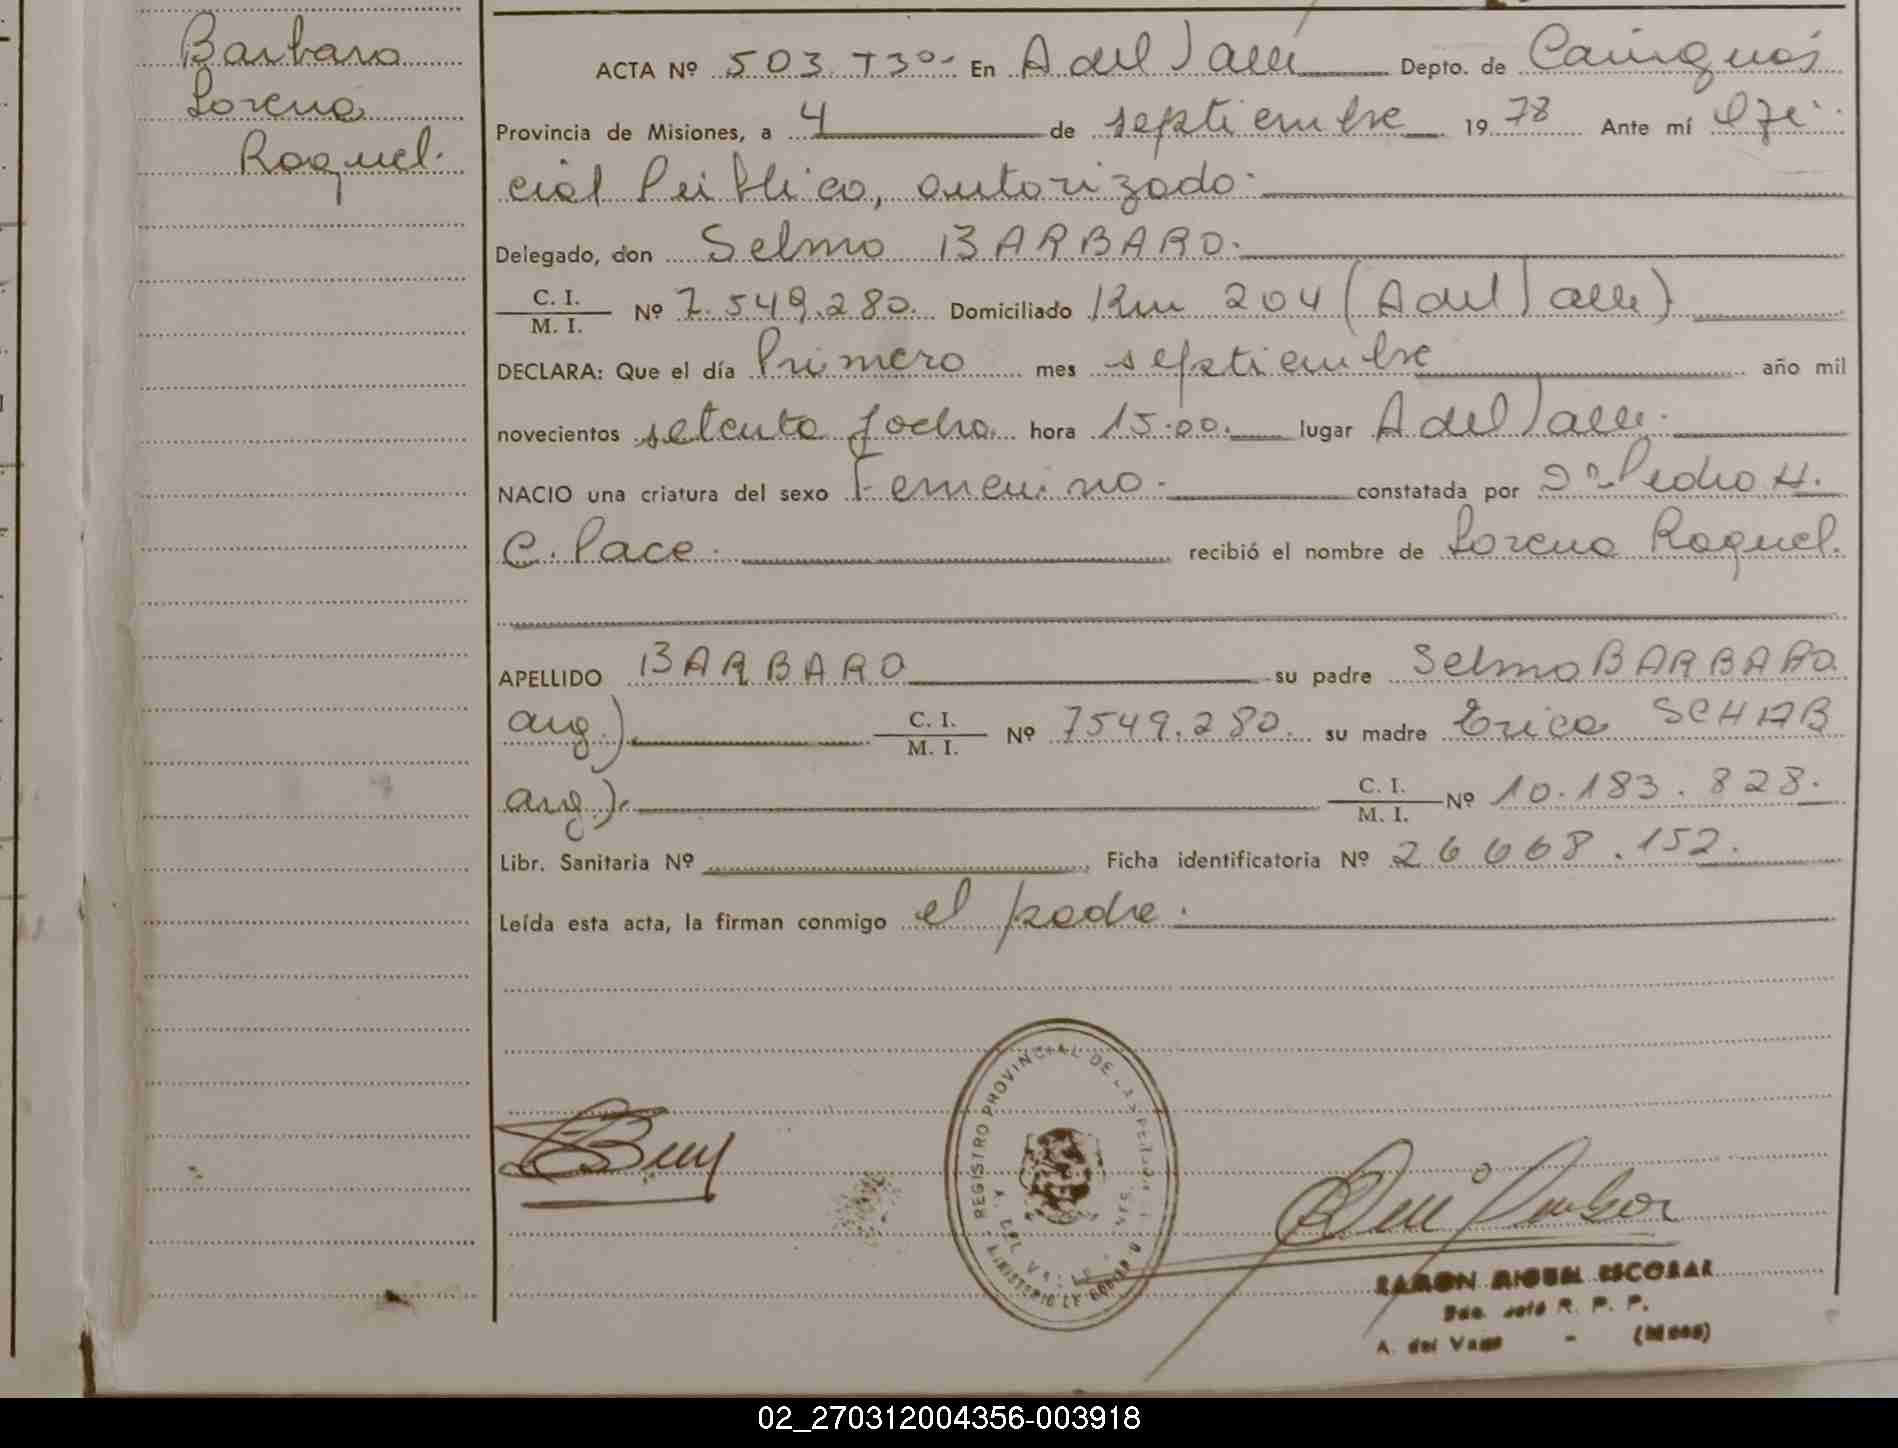 Barbaro
Lorena
Raquel.
ACTA Nº 503 Tº3º- En A del Valle Depto. de Cainguás
Provincia de Misiones, a 4 de septiembre 1978 Ante mí Ofi-
cial Público, autorizado.
Delegado, don Selmo BARBARO.
C. I.
M. I. Nº 7.549.280. Domiciliado Km 204 (A del Valle)
DECLARA: Que el día Primero mes septiembre año mil
novecientos setenta y ocho hora 15.00. lugar A del Valle.
NACIO una criatura del sexo Femenino. constatada por Dr. Pedro H.
C. Pace. recibió el nombre de Lorena Raquel.
APELLIDO BARBARO su padre Selmo BARBARO
arg.) C. I.
M. I. Nº 7549.280. su madre Erica SCHAB
arg.). C. I.
M. I. Nº 10.183.828.
Libr. Sanitaria Nº Ficha identificatoria Nº 26668.152.
Leída esta acta, la firman conmigo el padre.
REGISTRO PROVINCIAL DE LAS PERSONAS
A. DEL VALLE
MINISTERIO DE GOBIERNO
RAMON MIGUEL ESCOBAR
R. P. P.
A. del Valle - (Mnes)
02_270312004356-003918